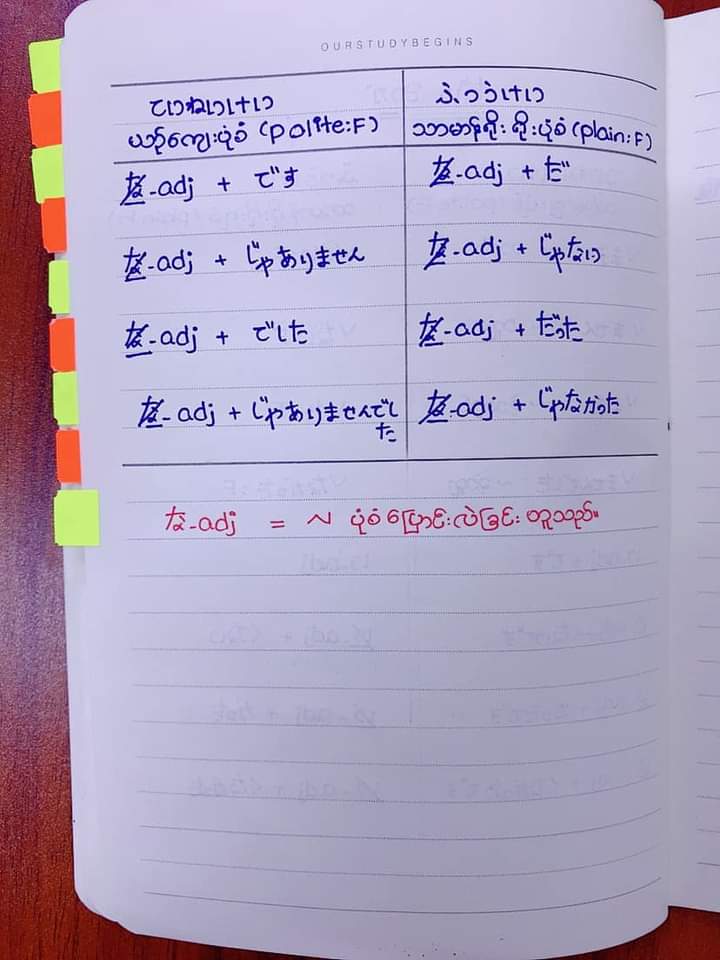 OURSTUDYBEGINS
ていねいけい ふつうけい
ယဉ်ကျေးပုံစံ (polite:F) သာမာန်ရိုးရိုးပုံစံ (plain:F)
な-adj + です な-adj + だ
な-adj + じゃありません な-adj + じゃない
な-adj + でした な-adj + だった
な-adj + じゃありませんでし な-adj + じゃなかった
た
な-adj = N ပုံစံပြောင်းလဲခြင်း တူသည်။